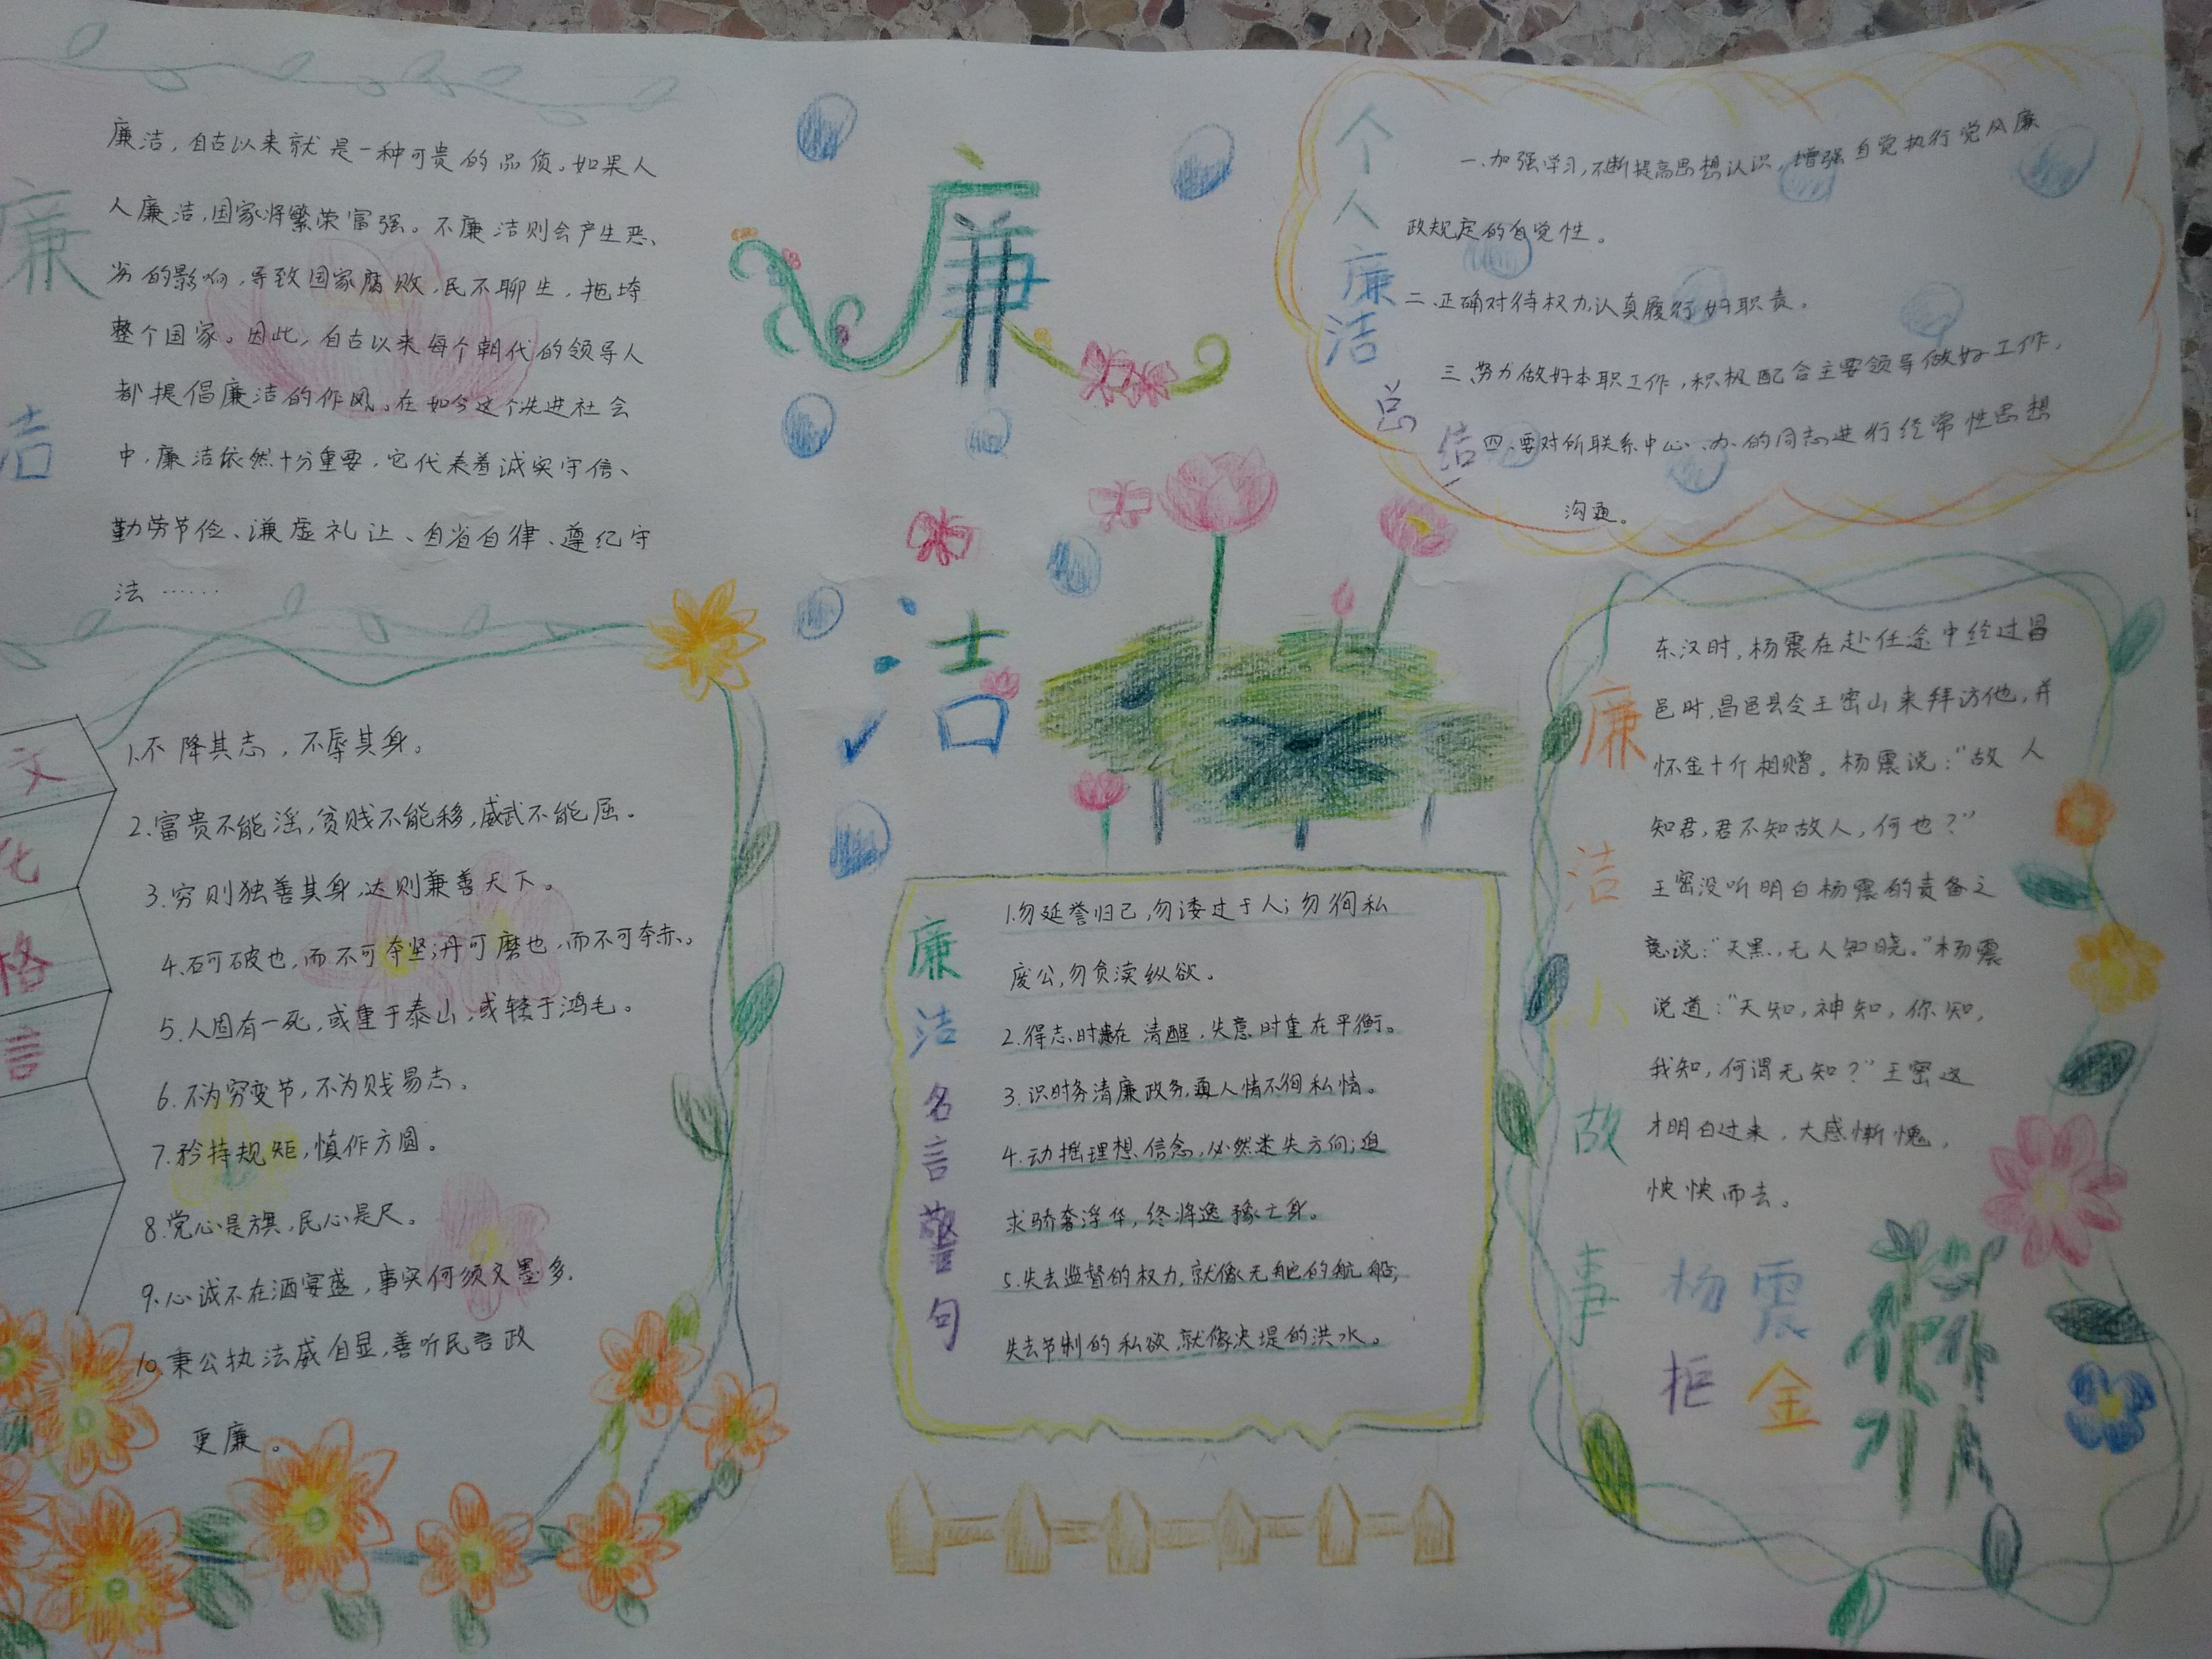 廉洁
廉洁，自古以来就是一种可贵的品质。如果人
人廉洁，国家将繁荣富强。不廉洁则会产生恶、
劣的影响，导致国家腐败，民不聊生，拖垮
整个国家。因此，自古以来每个朝代的领导人
都提倡廉洁的作风。在如今这个先进社会
中，廉洁依然十分重要，它代表着诚实守信、
勤劳节俭、谦虚礼让、自省自律、遵纪守
法……
廉
洁
个人廉洁总结
一、加强学习，不断提高思想认识，增强自觉执行党风廉
政规定的自觉性。
二、正确对待权力，认真履行好职责。
三、努力做好本职工作，积极配合主要领导做好工作，
四、要对所联系中心、办的同志进行经常性思想
沟通。
文化格言
1.不降其志，不辱其身。
2.富贵不能淫，贫贱不能移，威武不能屈。
3.穷则独善其身，达则兼善天下。
4.石可破也，而不可夺坚；丹可磨也，而不可夺赤。
5.人固有一死，或重于泰山，或轻于鸿毛。
6.不为穷变节，不为贱易志。
7.矜持规矩，慎作方圆。
8.党心是旗，民心是尺。
9.心诚不在酒宴盛，事实何须文墨多.
10.秉公执法威自显，善听民言政
更廉。
廉洁名言警句
1.勿延誉归己，勿诿过于人；勿徇私
废公，勿贪渎纵欲。
2.得志时贵在清醒，失意时重在平衡。
3.识时务清廉政务，通人情不徇私情。
4.动摇理想信念，必然迷失方向；追
求骄奢浮华，终将逸豫亡身。
5.失去监督的权力，就像无舵的航船，
失去节制的私欲，就像决堤的洪水。
廉洁小故事
东汉时，杨震在赴任途中经过昌
邑时，昌邑县令王密山来拜访他，并
怀金十斤相赠。杨震说：“故人
知君，君不知故人，何也？”
王密没听明白杨震的责备之
意说：“天黑，无人知晓。”杨震
说道：“天知，神知，你知，
我知，何谓无知？”王密这
才明白过来，大感惭愧，
怏怏而去。
杨震
拒金